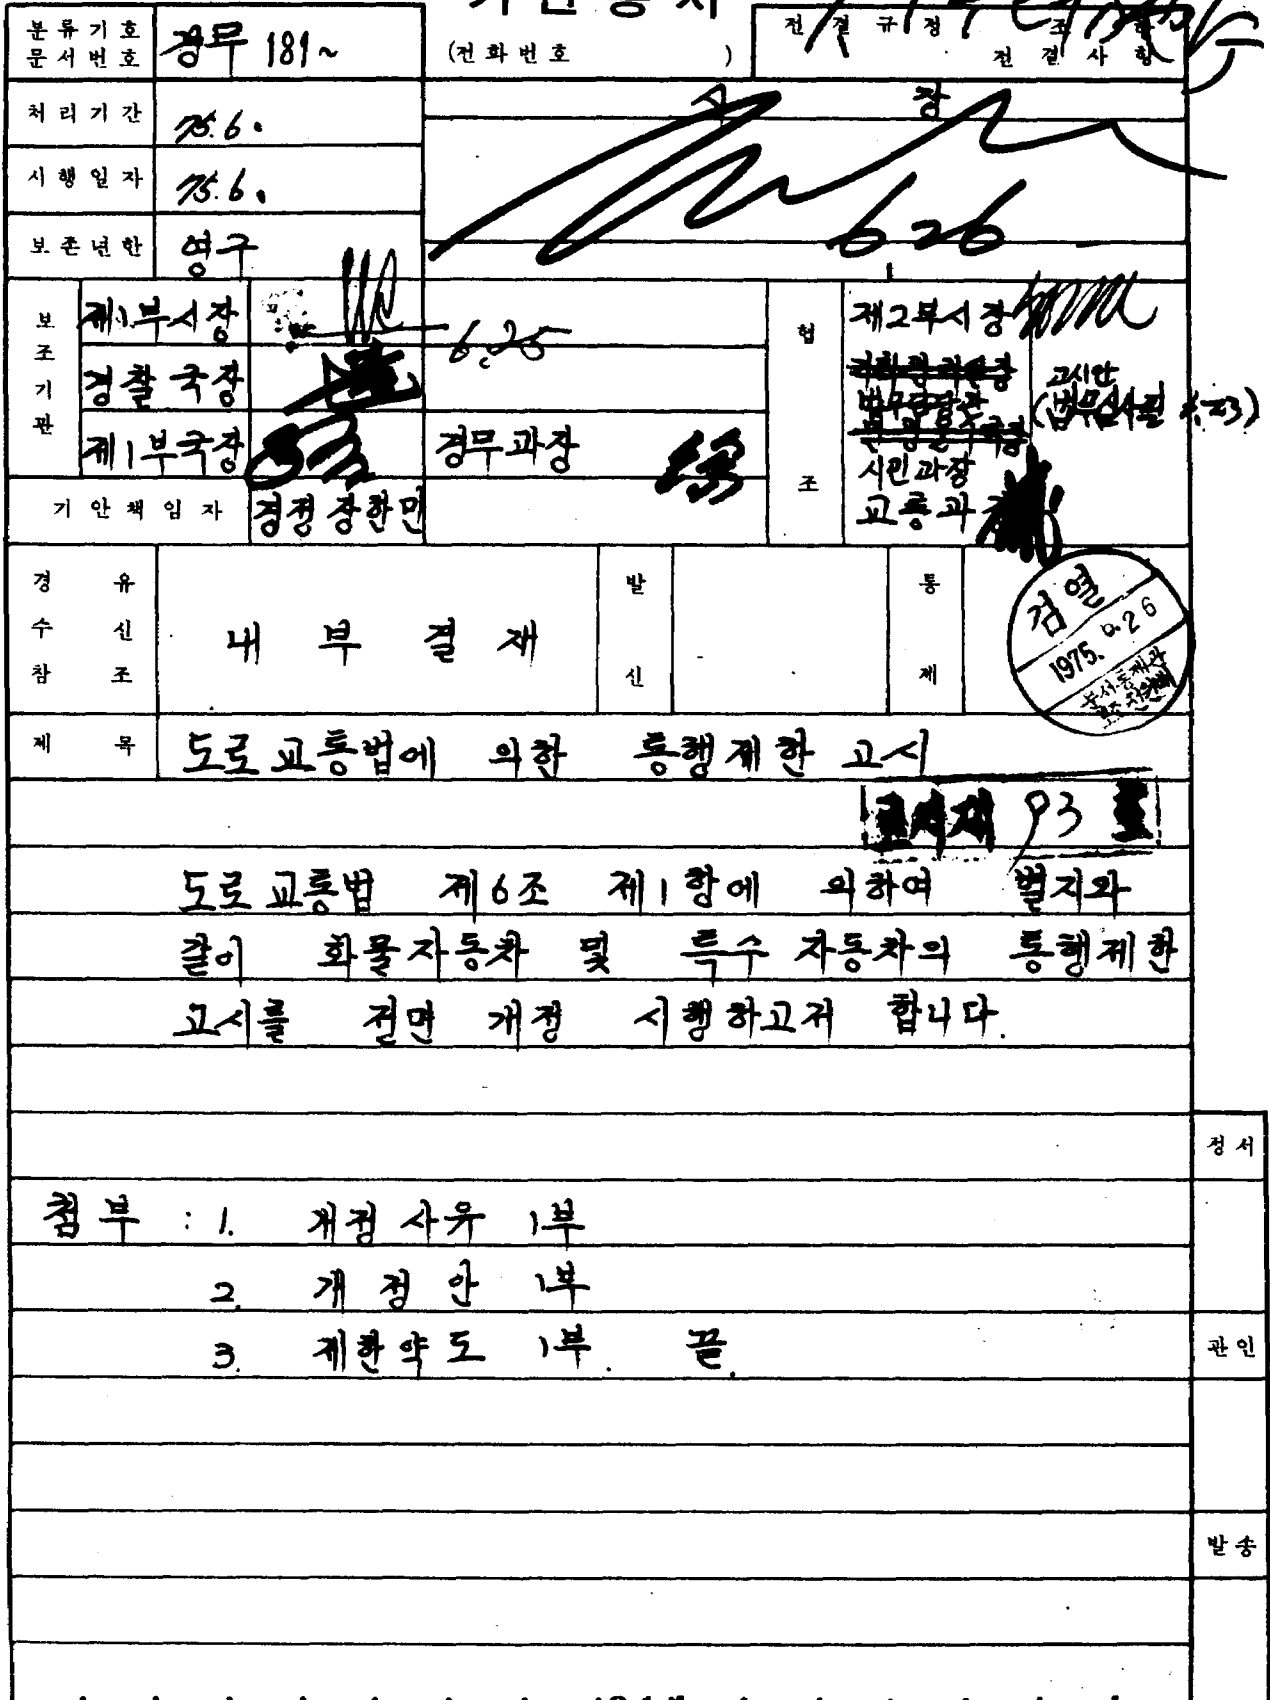 분류기호
문서번호
경무 181~
(전화번호 )
전결규정 조 항
전결사항
처리기간 75.6.
시 장
시행일자 75.6.
6 26
보존년한 영구
보조기관
제1부시장
6.25
경찰국장
제1부국장
경무과장
협조
제2부시장
고시안
시민과장
교통과
기안책임자 경정 장한민
경유
수신
참조
내 부 결 재
발신
통제
검열
1975. 6. 26
제 목 도로교통법에 의한 통행제한 고시
고시제 93 호
도로교통법 제6조 제1항에 의하여 별지와
같이 화물자동차 및 특수 자동차의 통행제한
고시를 전면 개정 시행하고저 합니다.
정서
첨부 : 1. 개정사유 1부
2. 개정안 1부
3. 제한약도 1부. 끝.
관인
발송